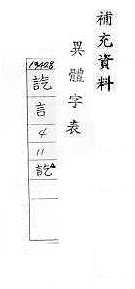 補充資料
異體字表
19408
訖
言
4
11
訖